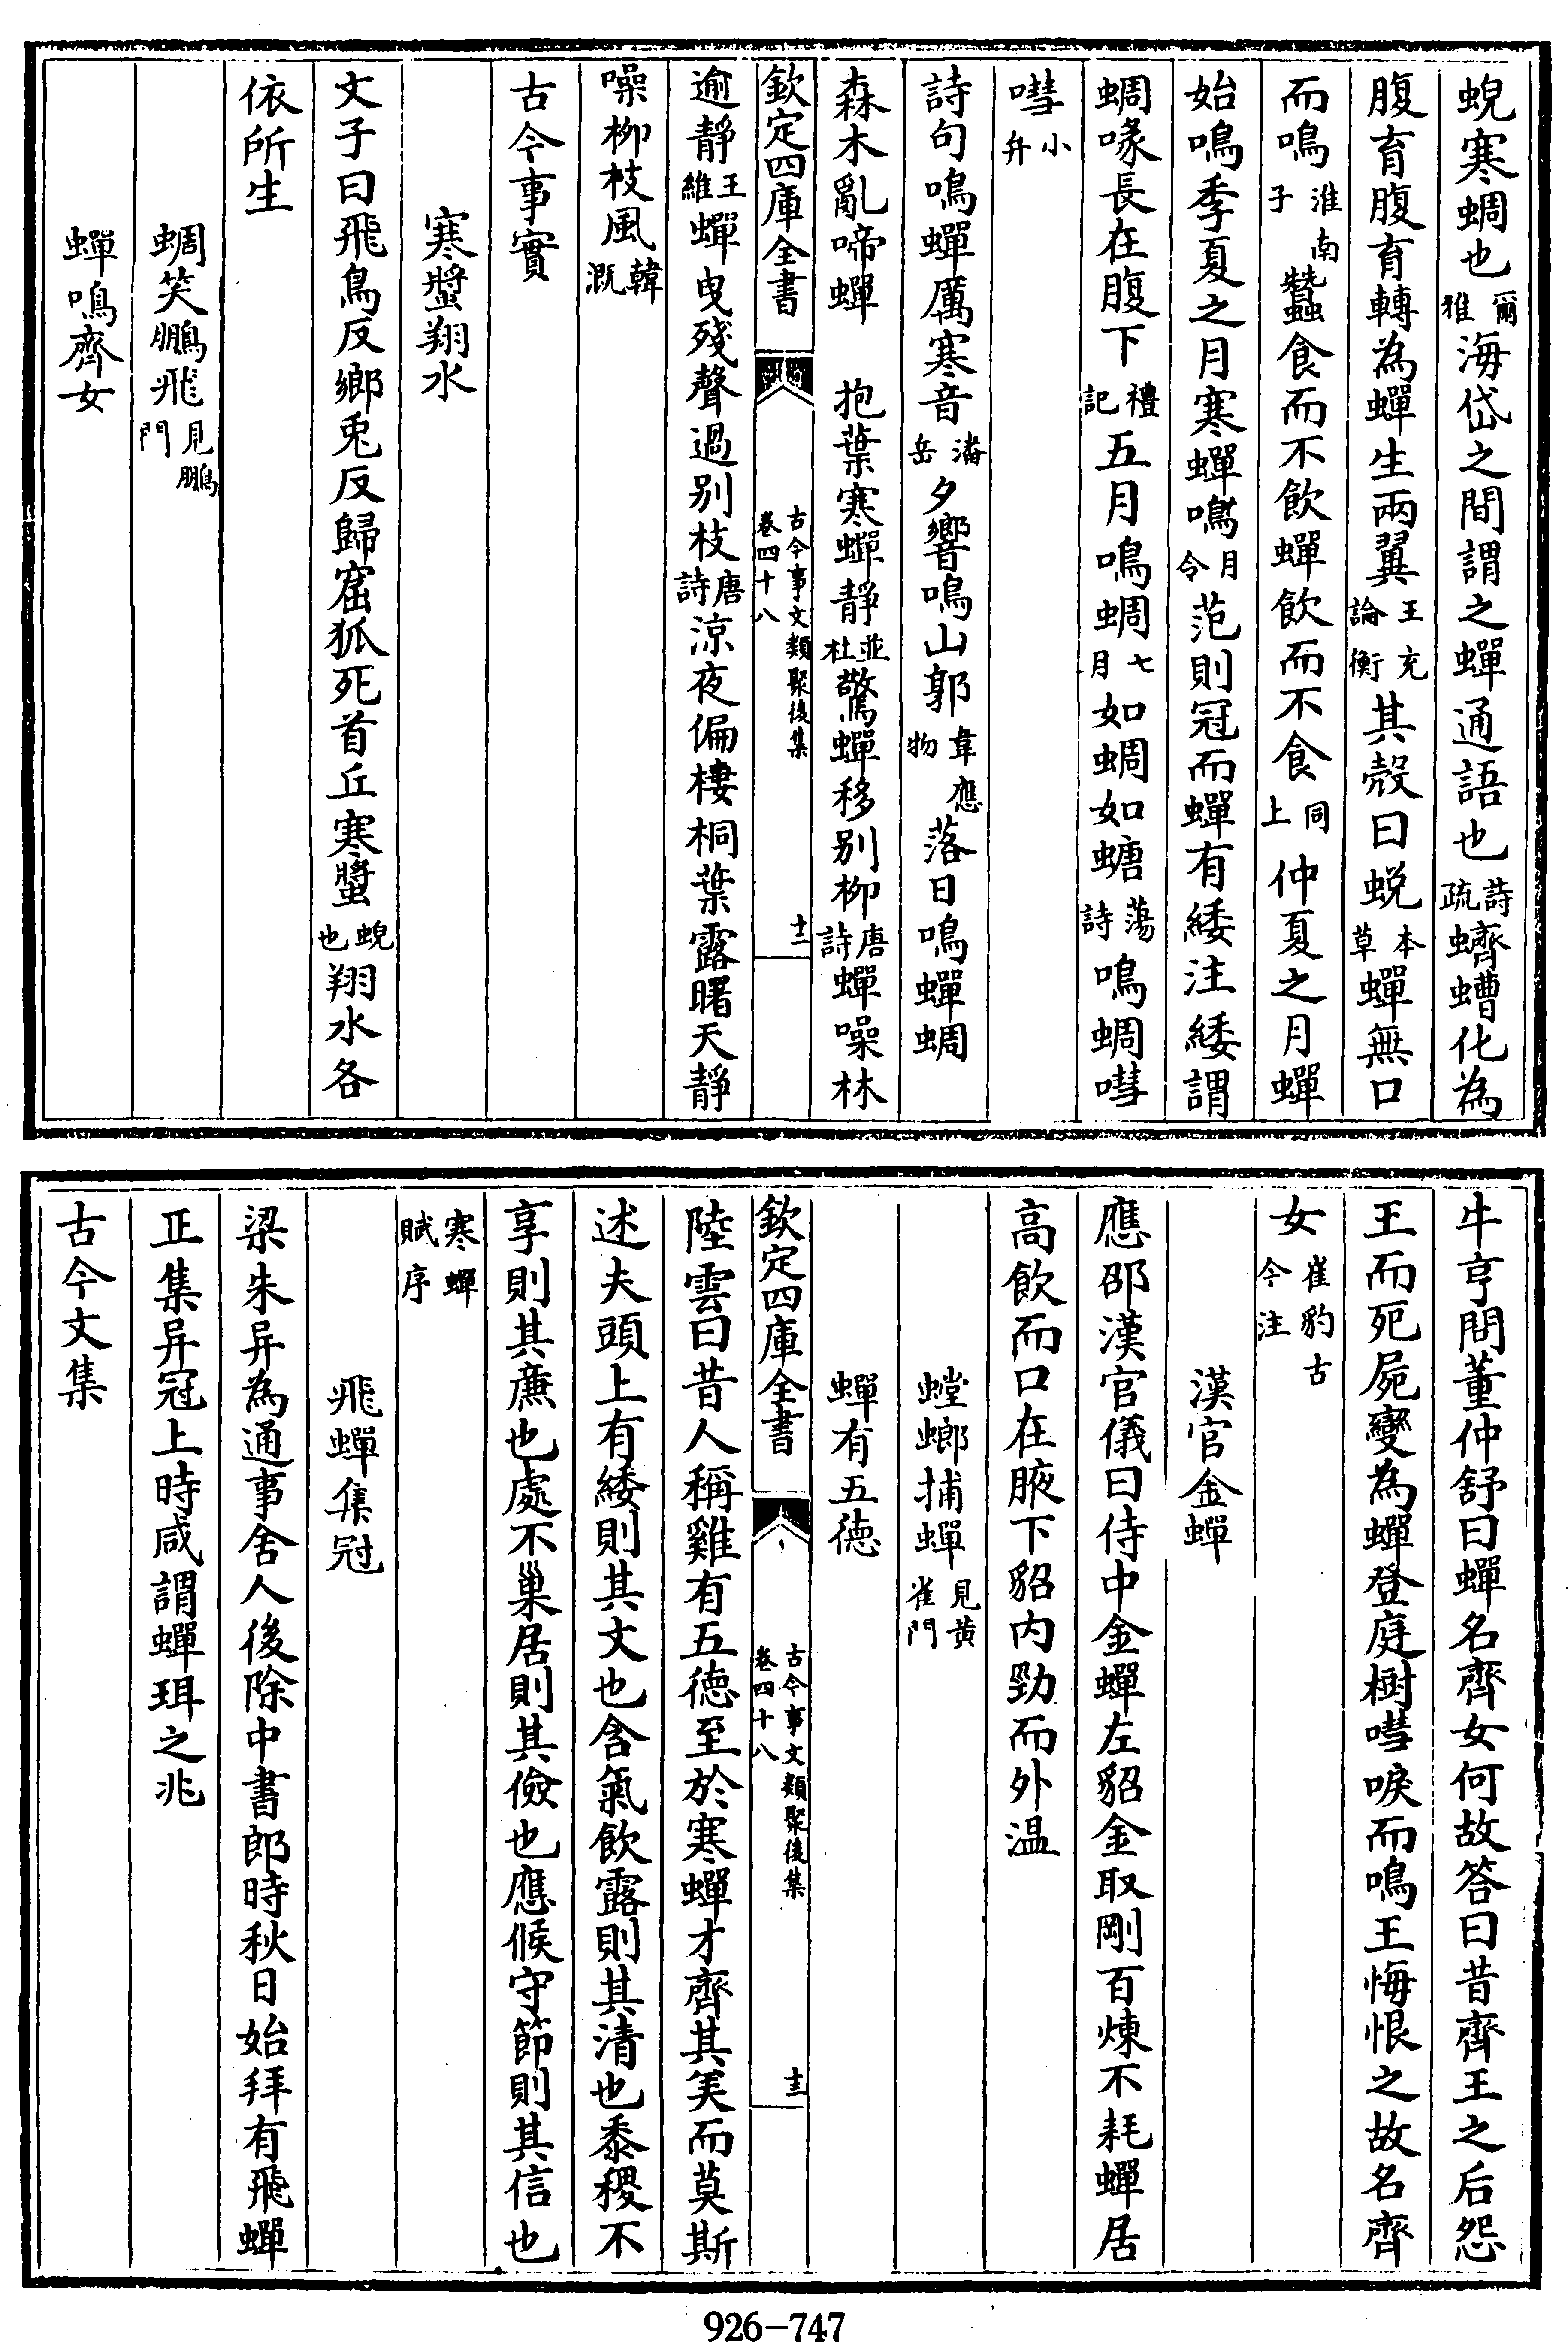 蜺寒蜩也爾雅海岱之間謂之蟬通語也詩疏蠐螬化為
腹育腹育轉為蟬生兩翼王充論衡其殼曰蜕本草蟬無口
而鳴淮南子蠶食而不飲蟬飲而不食同上仲夏之月蟬
始鳴季夏之月寒蟬鳴月令范則冠而蟬有緌注緌謂
蜩喙長在腹下禮記五月鳴蜩七月如蜩如螗蕩詩鳴蜩嘒
嘒小弁
詩句鳴蟬厲寒音潘岳夕響鳴山郭韋應物落日鳴蟬蜩
森木亂啼蟬　抱葉寒蟬靜並杜驚蟬移别柳唐詩蟬噪林
欽定四庫全書　古今事文類聚後集卷四十八　十二
逾靜王維蟬曳殘聲過别枝唐詩涼夜偏棲桐葉露曙天靜
噪柳枝風韓溉
古今事實
寒螿翔水
文子曰飛鳥反鄉兎反歸窟狐死首丘寒螿蜺也翔水各
依所生
蜩笑鵬飛見鵬門
蟬鳴齊女
牛亨問董仲舒曰蟬名齊女何故答曰昔齊王之后怨
王而死屍變為蟬登庭樹嘒唳而鳴王悔恨之故名齊
女崔豹古今注
漢官金蟬
應邵漢官儀曰侍中金蟬左貂金取剛百煉不耗蟬居
高飲而口在腋下貂内勁而外温
螳螂捕蟬見黄雀門
蟬有五德
欽定四庫全書　古今事文類聚後集卷四十八　十三
陸雲曰昔人稱雞有五德至於寒蟬才齊其美而莫斯
述夫頭上有緌則其文也含氣飲露則其清也黍稷不
享則其亷也處不巢居則其儉也應候守節則其信也
寒蟬賦序
飛蟬集冠
梁朱异為通事舍人後除中書郎時秋日始拜有飛蟬
正集异冠上時咸謂蟬珥之兆
古今文集
926-747